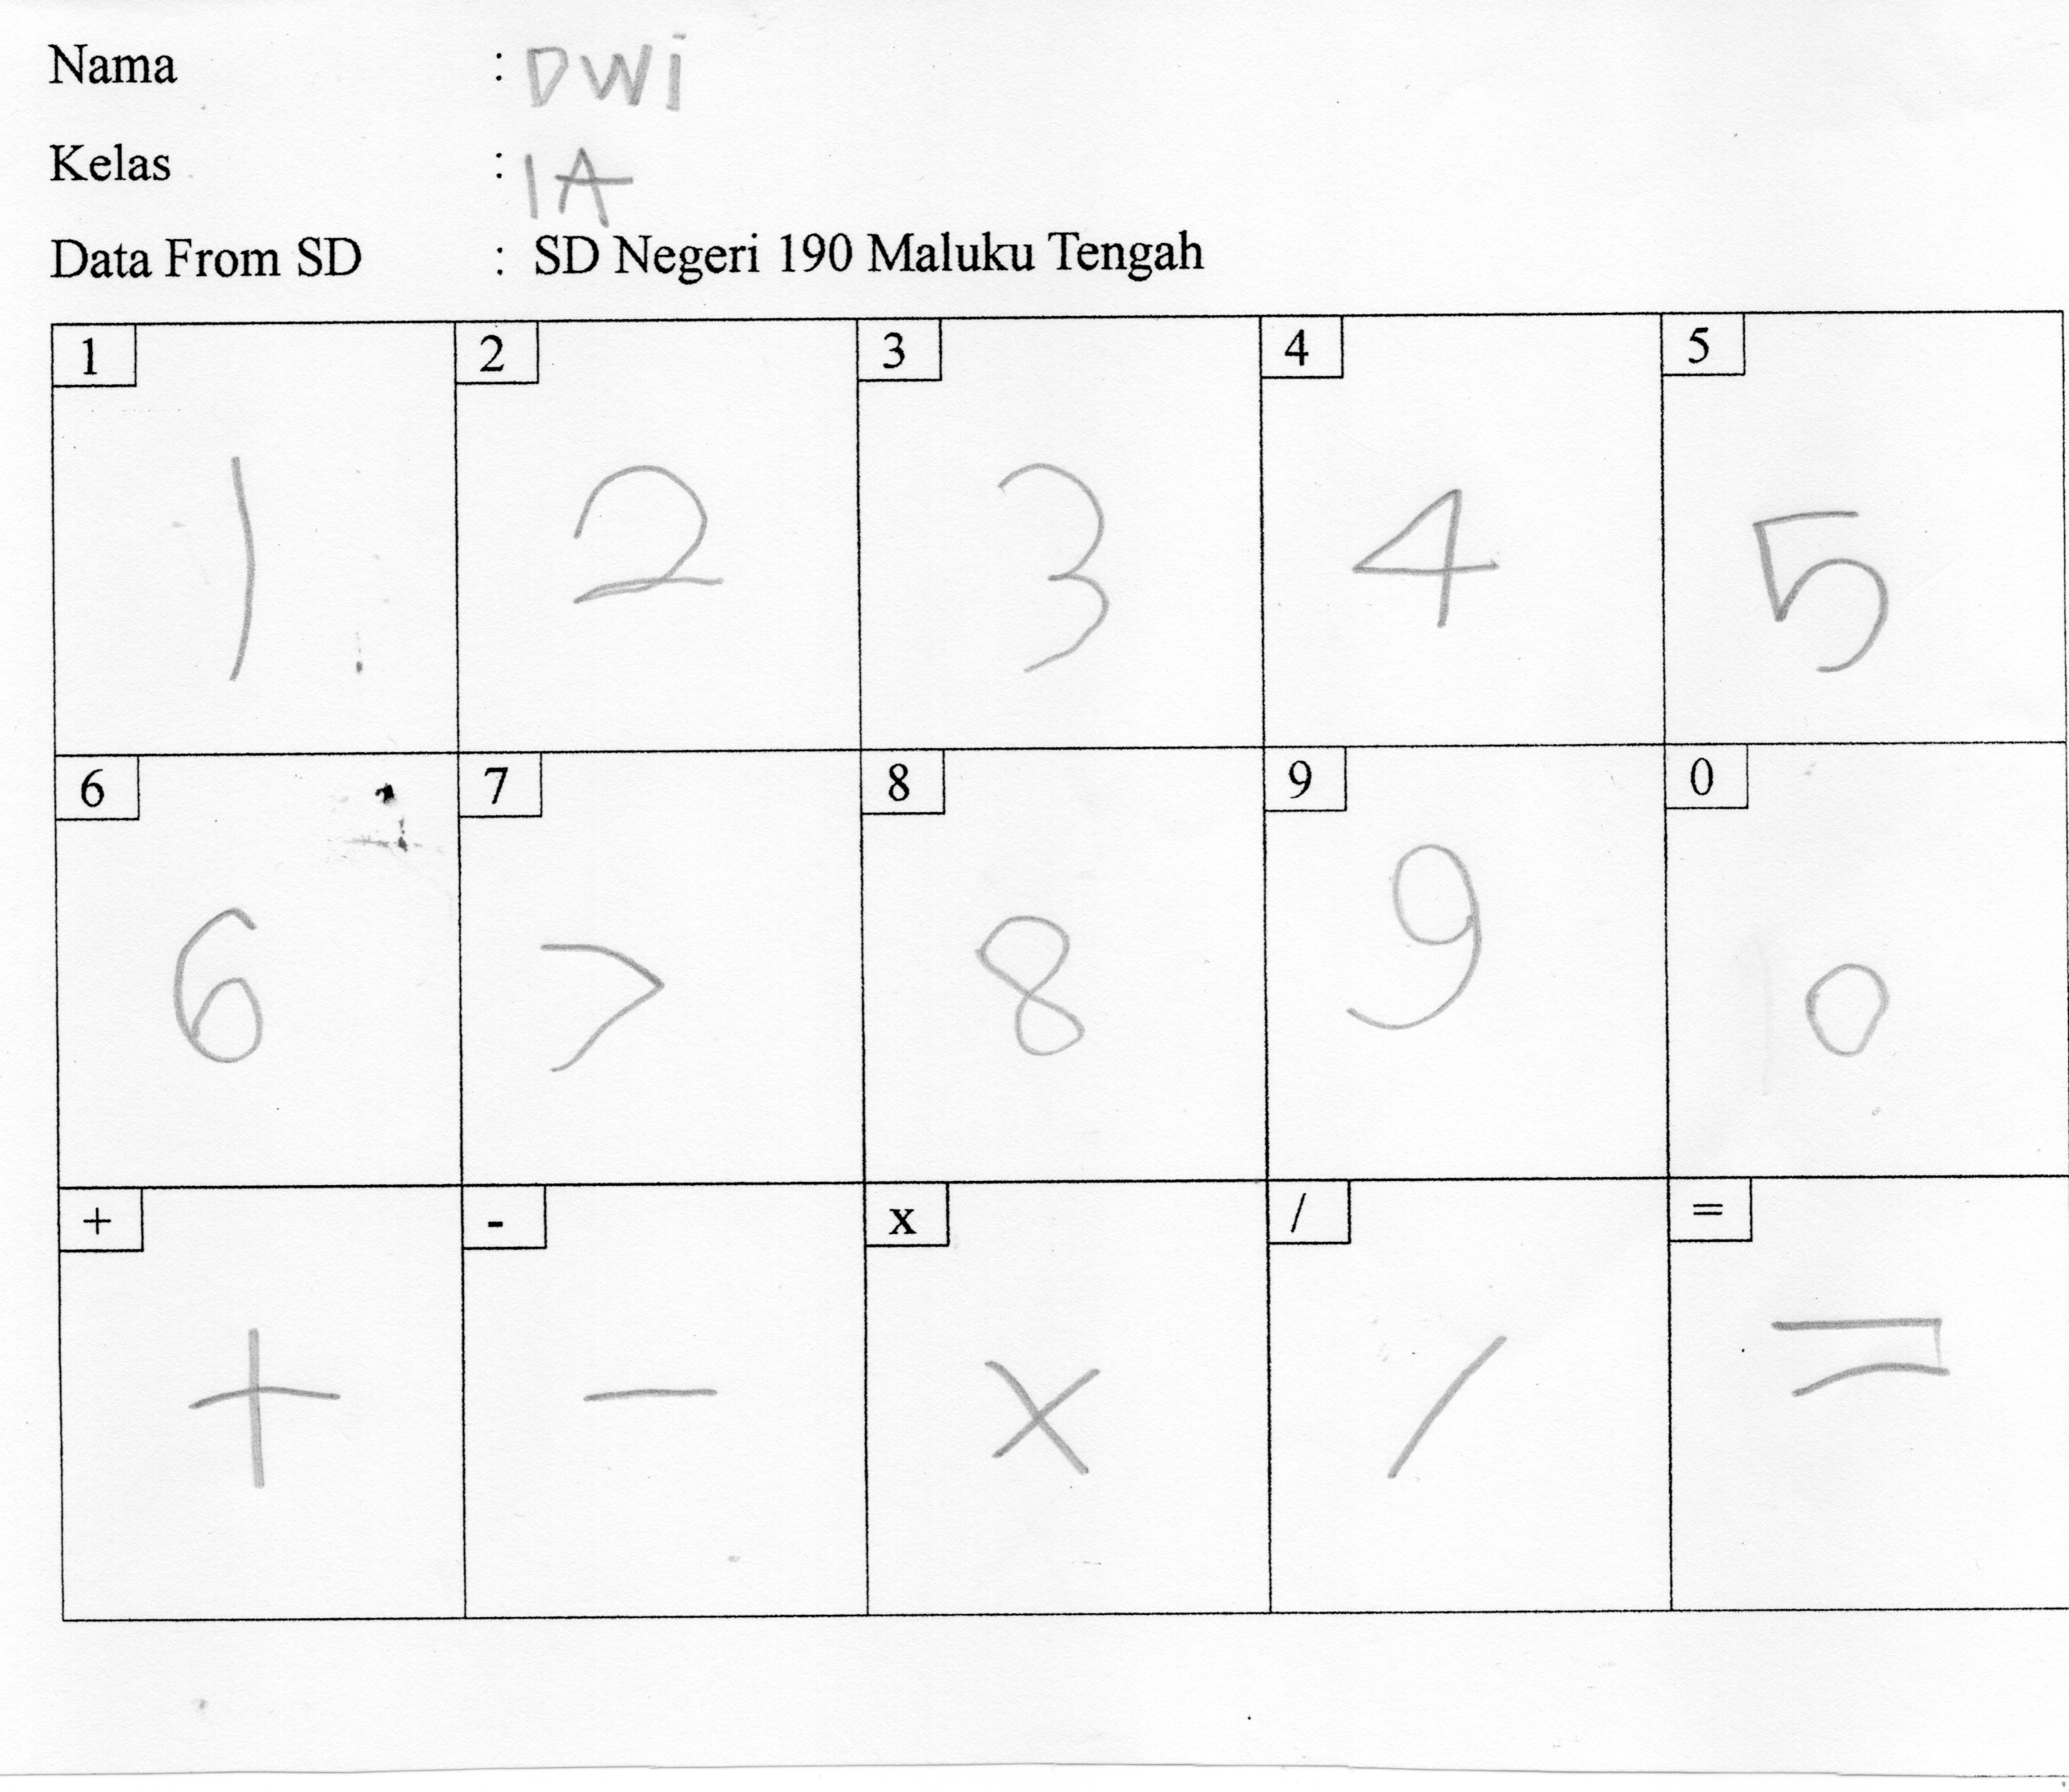 Nama : DWi
Kelas : 1A
Data From SD : SD Negeri 190 Maluku Tengah
1 2 3 4 5
1 2 3 4 5
6 7 8 9 0
6 7 8 9 0
+ - x /  =
+ - x / =